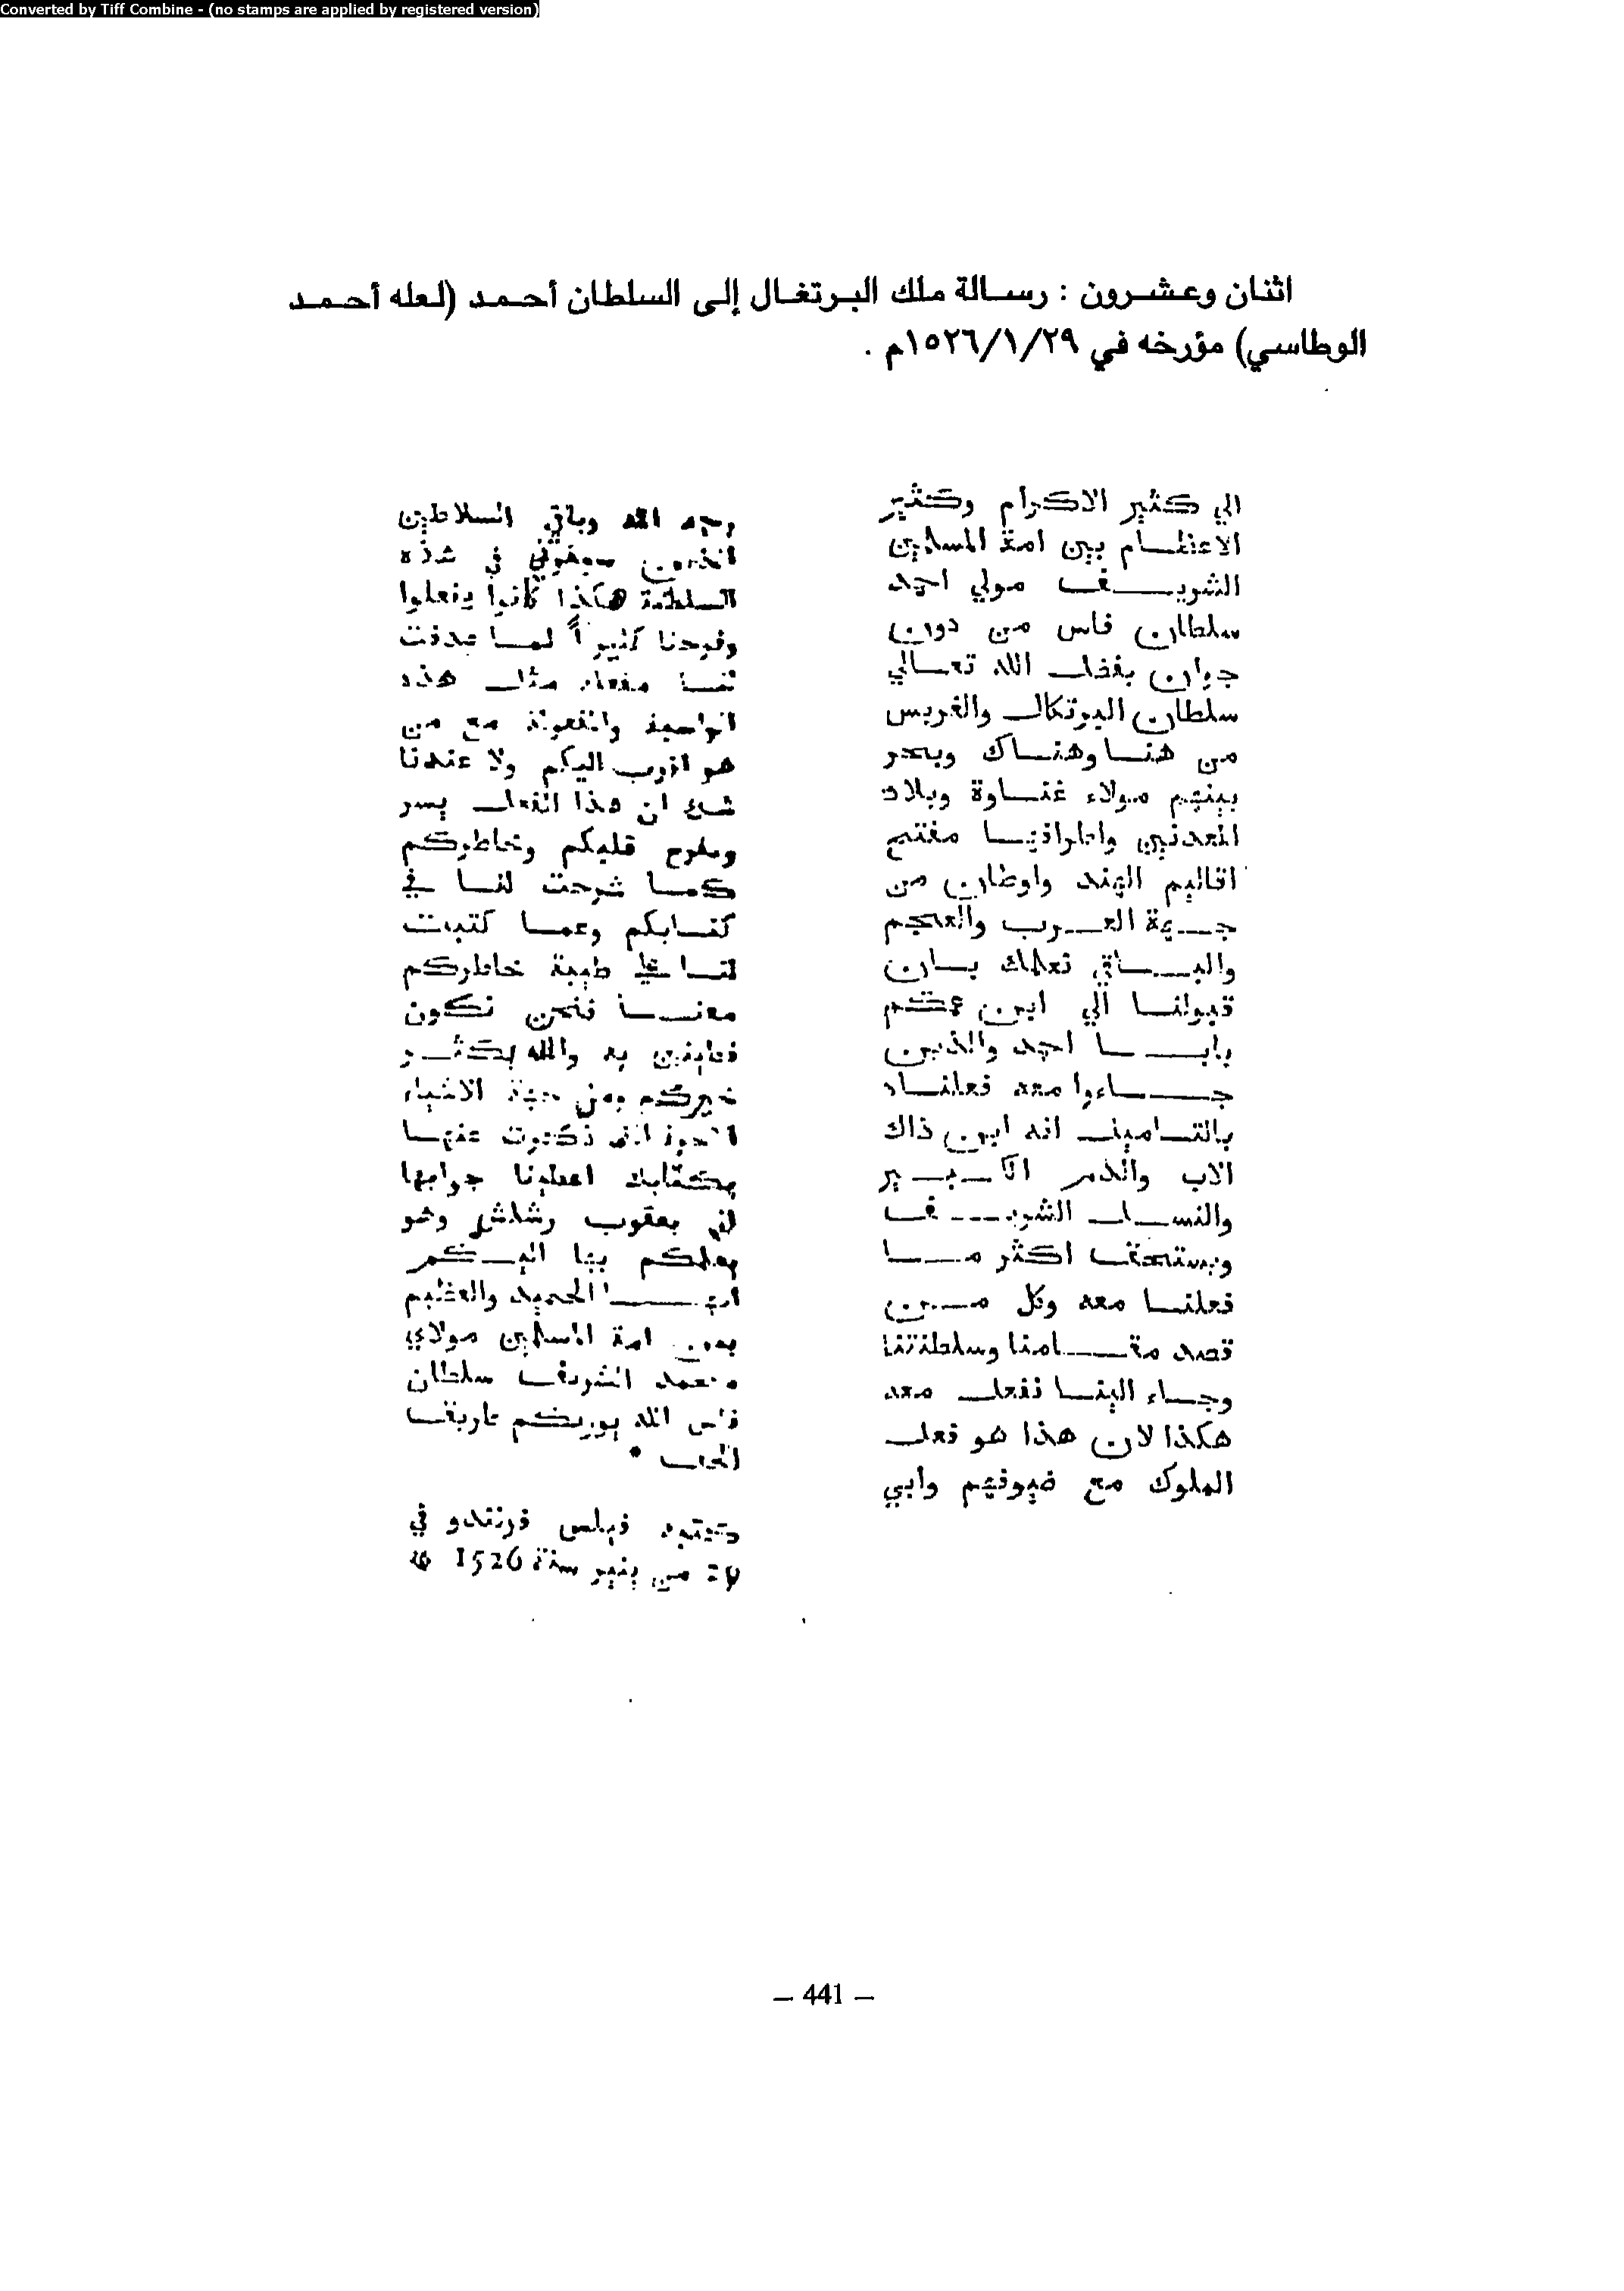 Converted by Tiff Combine - (no stamps are applied by registered version)
اثنان وعشرون : رسالة ملك البرتغال إلى السلطان أحمد (لعله أحمد
الوطاسي) مؤرخه في ١٥٢٦/١/٢٩م .
الي كثير الاكرام وكثير
الاعتظام بين امة المسلمين
الشريف مولي احمد
سلطان فاس من دون
جوان بفضل الله تعالي
سلطان البرتكال والغربس
من هنا وهناك وبحر
بينهم مولاء غناوة وبلاد
المعدنين واطرافها مفتح
اقاليم الهند واوطان من
جهة العرب والعجم
والباقي نعلمك بان
قبولنا الي ابن عمكم
بابا احمد والذين
جاءوا معه فعلناه
بالتامين انه ابن ذاك
الاب والدم الكبير
والنسل الشريف
ويستحق اكثر ما
فعلنا معه وكل من
قصد مقامنا وسلطنتنا
وجاء الينا نفعل معه
هكذا لان هذا هو فعل
الملوك مع ضيوفهم وأبي
رحمه الله وباقي السلاطين
الذين سبقوني في هذه
السلطنة هكذا كانوا يفعلوا
وفرحنا كثيراً لما
مثل هذه
مع من
هو اقرب اليكم ولا عندنا
شك ان هذا الفعل يسر
ويفرح قلبكم وخاطركم
كما شرحت لنا في
كتابكم وعما كتبت
لنا على طيبة خاطركم
معنا فنحن نكون
به والله يكثر
خيركم ومن جهة الاشياء
ذكرت عنها
بكتابك اعطينا جوابها
الي يعقوب رشلش وهو
يعلمكم بها
الحميد والعظيم
بين امة المسلمين مولاي
محمد الشريف سلطان
فاس الله يوريكم طريق
الحق •
كتبه فيلس فرنندو في
من ينير سنة 1526
— 441 —